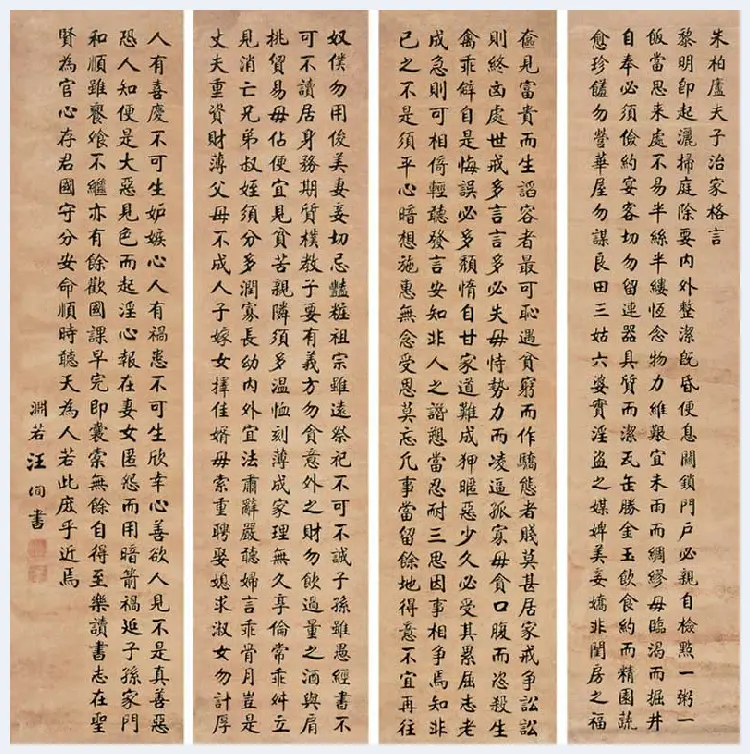 朱柏盧夫子治家格言
黎明即起灑掃庭除要内外整潔既昏便息關鎖門戶必親自檢點一粥一
飯當思来處不易半絲半縷恆念物力維艱宜未雨而綢繆毋臨渴而掘井
自奉必須儉約宴客切勿留連器具質而潔瓦缶勝金玉飲食約而精園蔬
愈珍饈勿營華屋勿謀良田三姑六婆實淫盜之媒婢美妾嬌非閨房之福
奴僕勿用俊美妻妾切忌豔粧祖宗雖遠祭祀不可不誠子孫雖愚經書不
可不讀居身務期質樸教子要有義方勿貪意外之財勿飲過量之酒與肩
挑貿易毋佔便宜見貧苦親隣須多温恤刻薄成家理無久享倫常乖舛立
見消亡兄弟叔姪須分多潤寡長幼内外宜法肅辭嚴聽婦言乖骨肉豈是
丈夫重資財薄父母不成人子嫁女擇佳婿毋索重聘娶媳求淑女勿計厚
奩見富貴而生諂容者最可恥遇貧窮而作驕態者賤莫甚居家戒爭訟訟
則終凶處世戒多言言多必失毋恃勢力而凌逼孤寡毋貪口腹而恣殺生
禽乖僻自是悔誤必多頹惰自甘家道難成狎暱惡少久必受其累屈志老
成急則可相倚輕聽發言安知非人之譖愬當忍耐三思因事相爭焉知非
己之不是須平心暗想施惠無念受恩莫忘凡事當留餘地得意不宜再往
人有喜慶不可生妒嫉心人有禍患不可生欣幸心善欲人見不是真善惡
恐人知便是大惡見色而起淫心報在妻女匿怨而用暗箭禍延子孫家門
和順雖饔飧不繼亦有餘歡國課早完即囊橐無餘自得至樂讀書志在聖
賢為官心存君國守分安命順時聽天為人若此庶乎近焉
淵若汪洵書